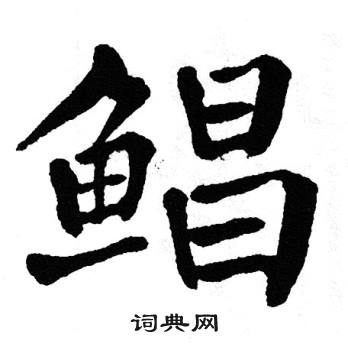 鲳
词典网